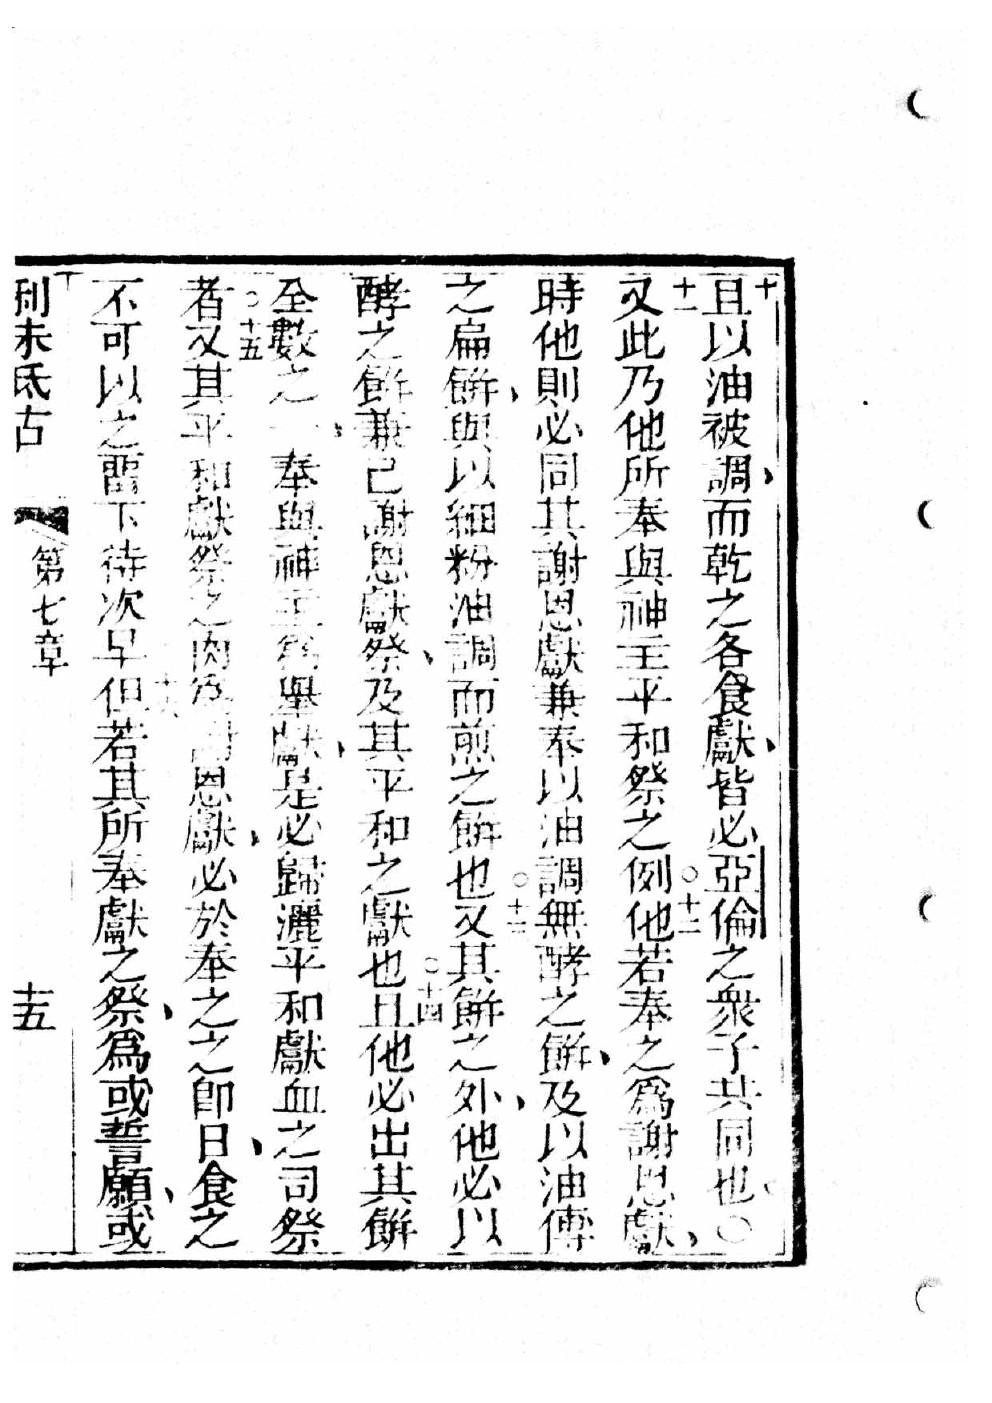 十且以油被調、而乾之各食獻、皆必亞倫之衆子共同也、〇
十一又此乃他所奉與神主平和祭之例〇十二他若奉之爲謝恩獻、
時他則必同其謝恩獻兼奉以油調無〇十三酵之餅、及以油傅
之扁餅、與以細粉油調而煎之餅也又其餅之外、他必以
酵之餅兼己謝恩獻祭、及其平和之獻也〇十四且他必出其餅
全數之一、奉與神主爲舉獻、是必歸灑平和獻血之司祭
者〇十五又其平和獻祭之肉爲謝恩獻、必於奉之之即日、食之
不可以之留下待次早十六但若其所奉獻之祭、爲或誓願、或
利未氏古 第七章 十五